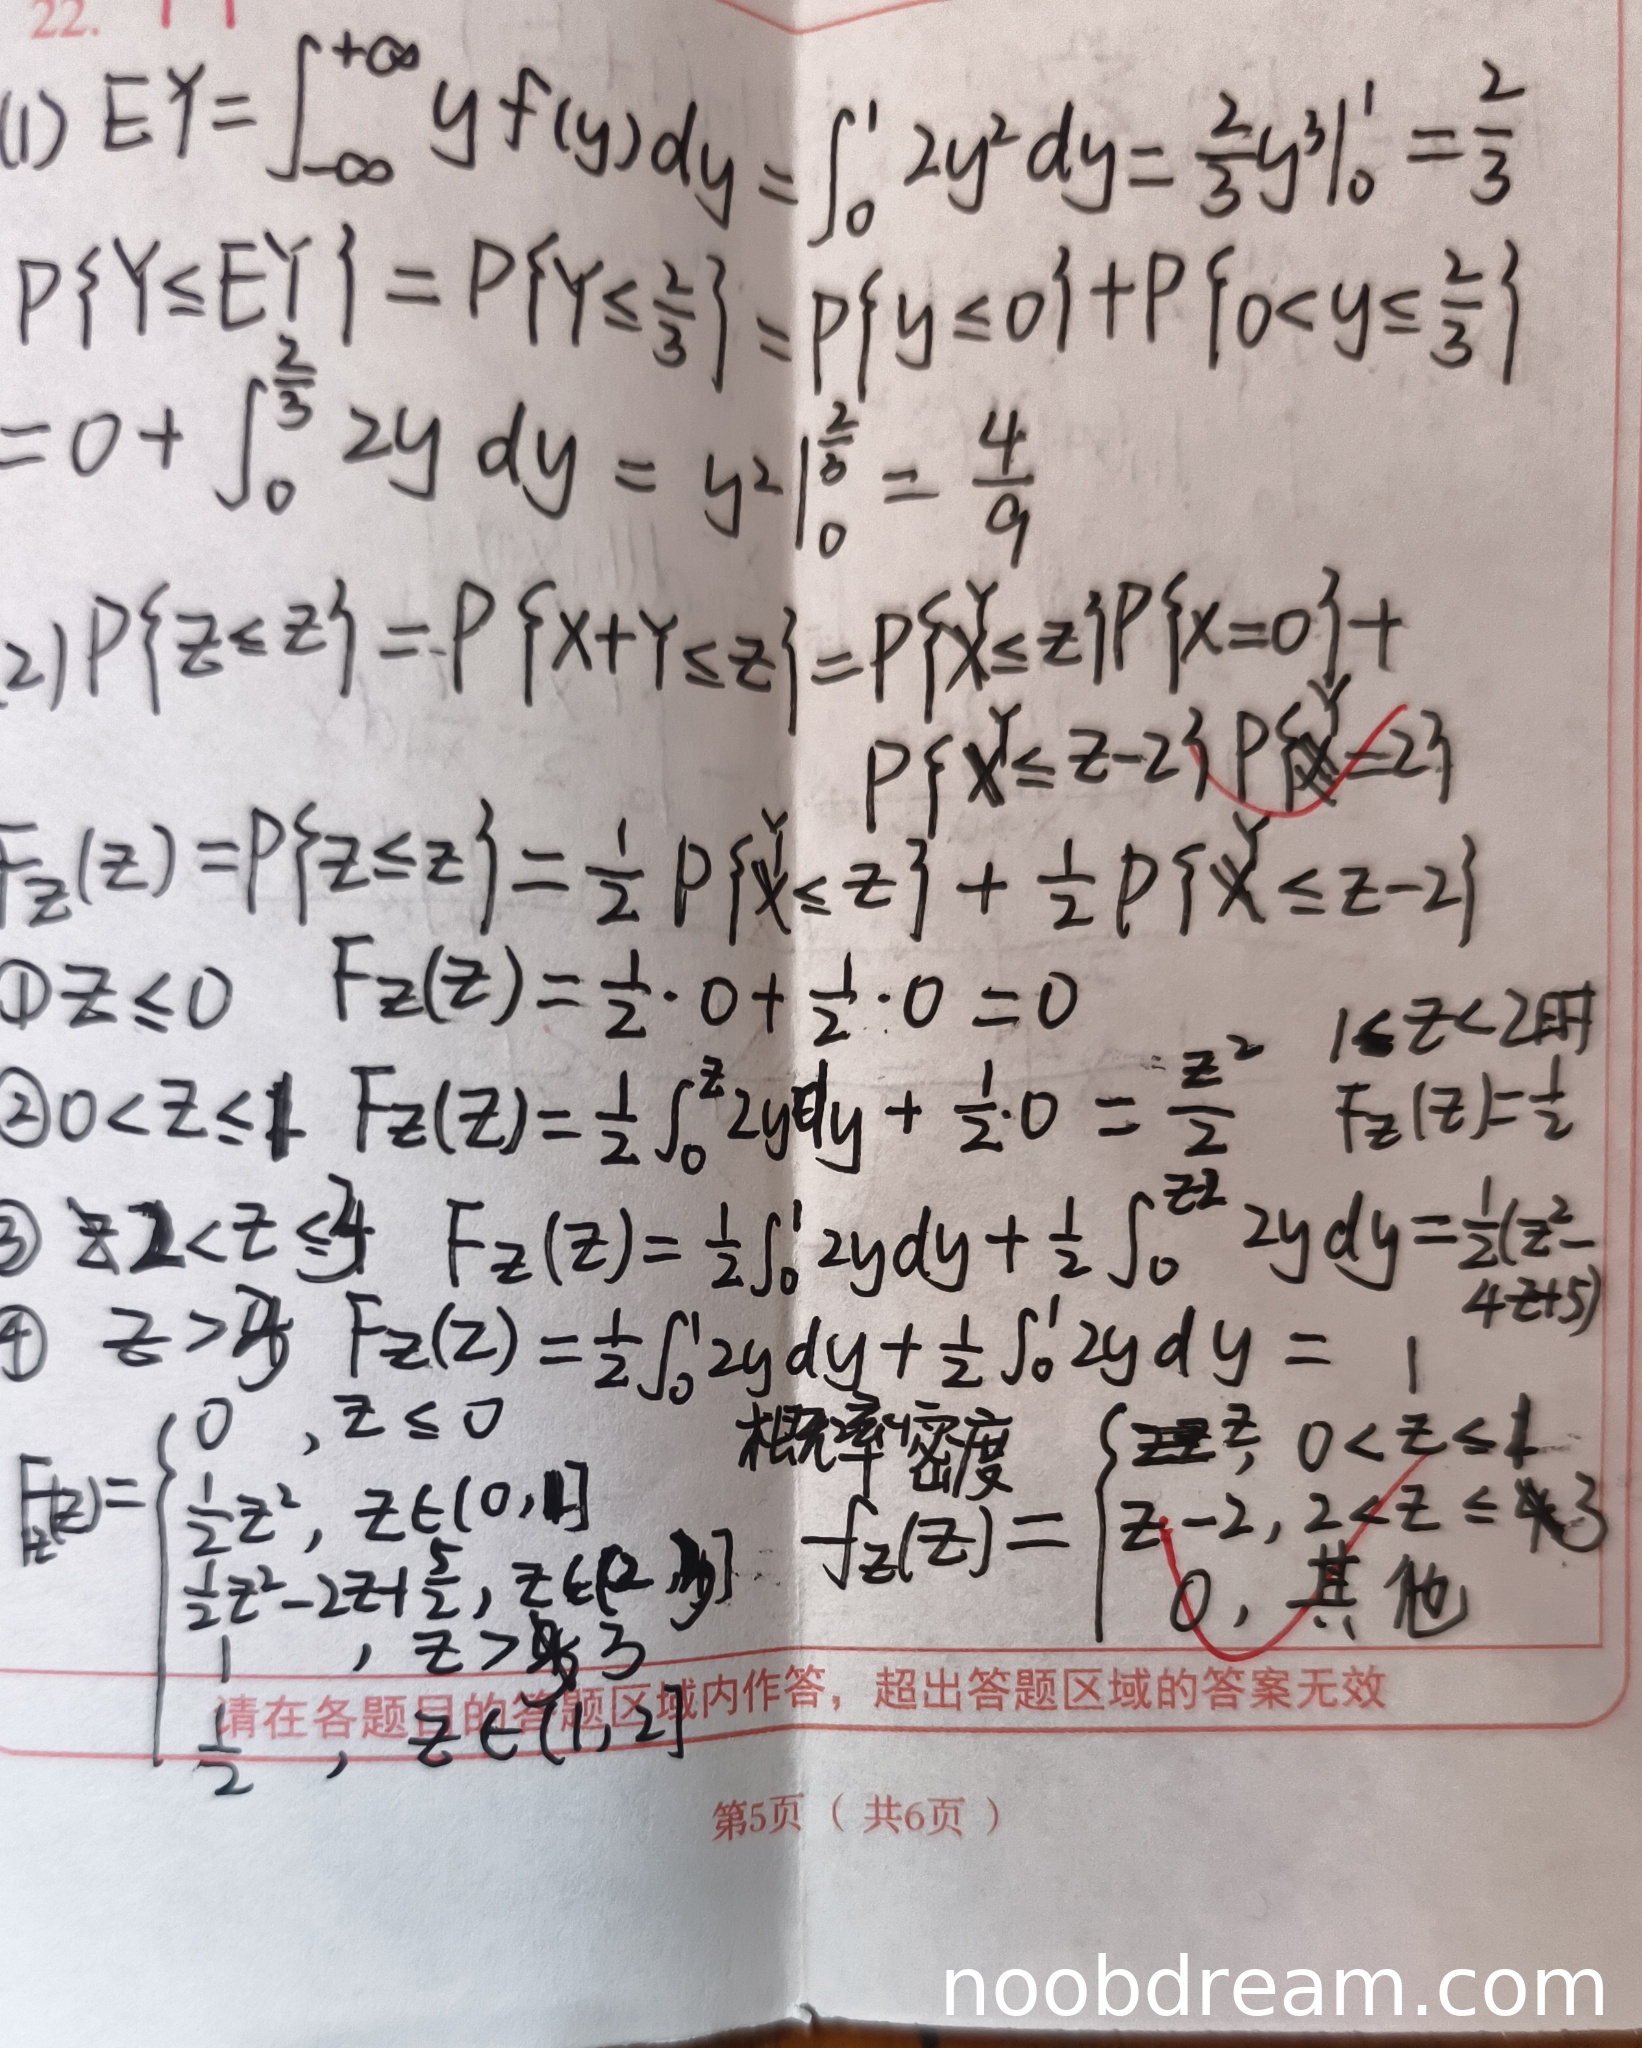 22.
(1) EY = ∫_{-∞}^{+∞} y f(y) dy = ∫_0^1 2y² dy = 2/3 y³|_0^1 = 2/3
P{Y≤EY} = P{Y≤2/3} = P{y≤0} + P{0<y≤2/3}
= 0 + ∫_0^{2/3} 2y dy = y²|_0^{2/3} = 4/9
(2) P{Z≤z} = P{X+Y≤z} = P{Y≤z}P{X=0} +
P{Y≤z-2} P{X=2}
F_Z(z) = P{Z≤z} = 1/2 P{Y≤z} + 1/2 P{Y≤z-2}
① z≤0 F_Z(z) = 1/2·0 + 1/2·0 = 0
1≤z<2时
② 0<z≤1 F_Z(z) = 1/2 ∫_0^z 2y dy + 1/2·0 = z²/2 F_Z(z) = 1/2
③ 2<z≤3 F_Z(z) = 1/2 ∫_0^1 2y dy + 1/2 ∫_0^{z-2} 2y dy = 1/2(z²-
4z+5)
④ z>3 F_Z(z) = 1/2 ∫_0^1 2y dy + 1/2 ∫_0^1 2y dy = 1
F_Z(z) = { 0, z≤0
1/2 z², z∈(0,1]
1/2 z²-2z+5/2, z∈(2,3]
1, z>3
1/2, z∈(1,2]
概率密度
f_Z(z) = { z, 0<z≤1
z-2, 2<z≤3
0, 其他
请在各题目的答题区域内作答，超出答题区域的答案无效
第5页（共6页）
noobdream.com